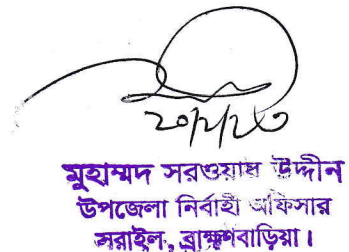 মুহাম্মদ সরওয়ার উদ্দীন
উপজেলা নির্বাহী অফিসার
সরাইল, ব্রাহ্মণবাড়িয়া।